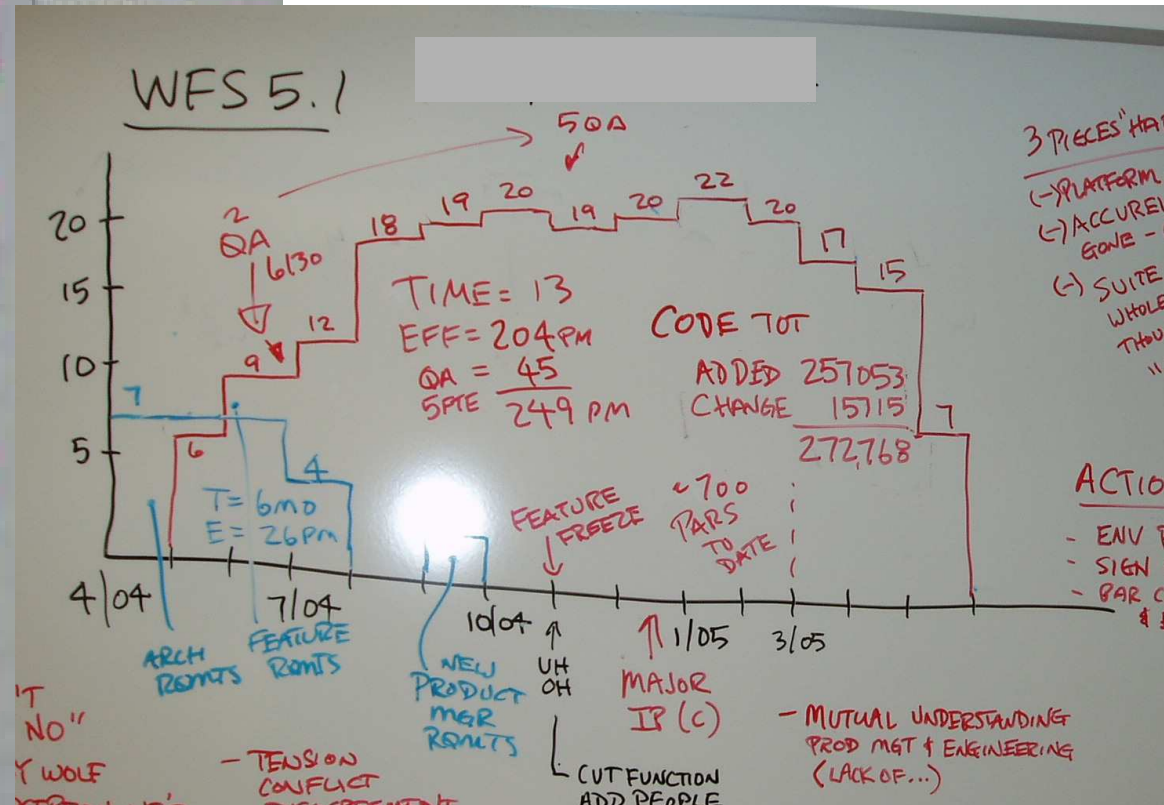 WFS 5.1
5QA
2
QA
6/30
20
15
10
5
7
6
9
12
18
19
20
19
20
22
20
17
15
7
4
TIME = 13
EFF = 204 PM
QA = 45
5PTE
249 PM
CODE TOT
ADDED 257053
CHANGE 15715
272,768
T = 6mo
E = 26pm
FEATURE
FREEZE
~700
PARS
TO
DATE
4/04
7/04
10/04
1/05
3/05
ARCH
RQMTS
FEATURE
RQMTS
NEW
PRODUCT
MGR
RQMTS
UH
OH
CUT FUNCTION
ADD PEOPLE
MAJOR
IP (C)
- MUTUAL UNDERSTANDING
PROD MGT & ENGINEERING
(LACK OF...)
- TENSION
CONFLICT
'T
NO"
Y WOLF
3 PIECES "HA
(-) PLATFORM
(-) ACCUREV
GONE -
(-) SUITE
WHOLE
THOU
"
ACTIO
- ENV
- SIGN
- BAR C
&